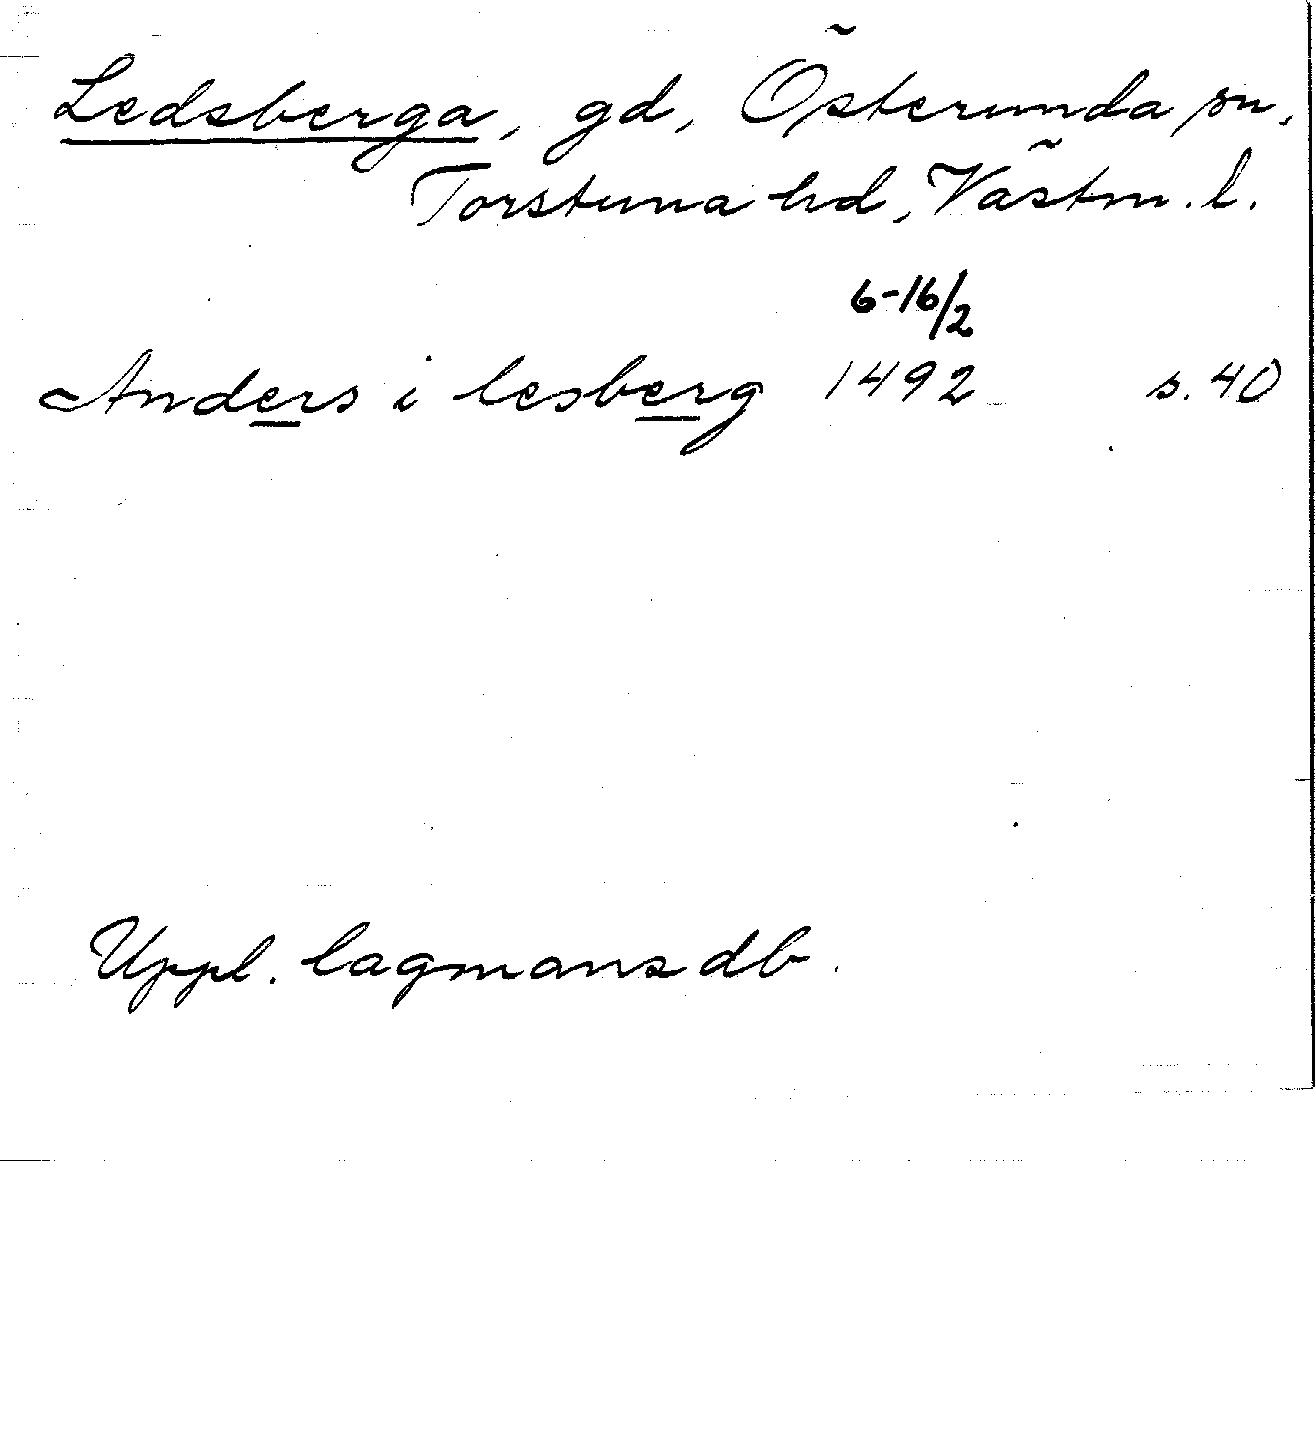 Ledsberga, gd, Österunda sn,
Torstuna hd, Västm. l.
6-16/2
Anders i lesberg 1492 s. 40
Uppl. lagmansdb.